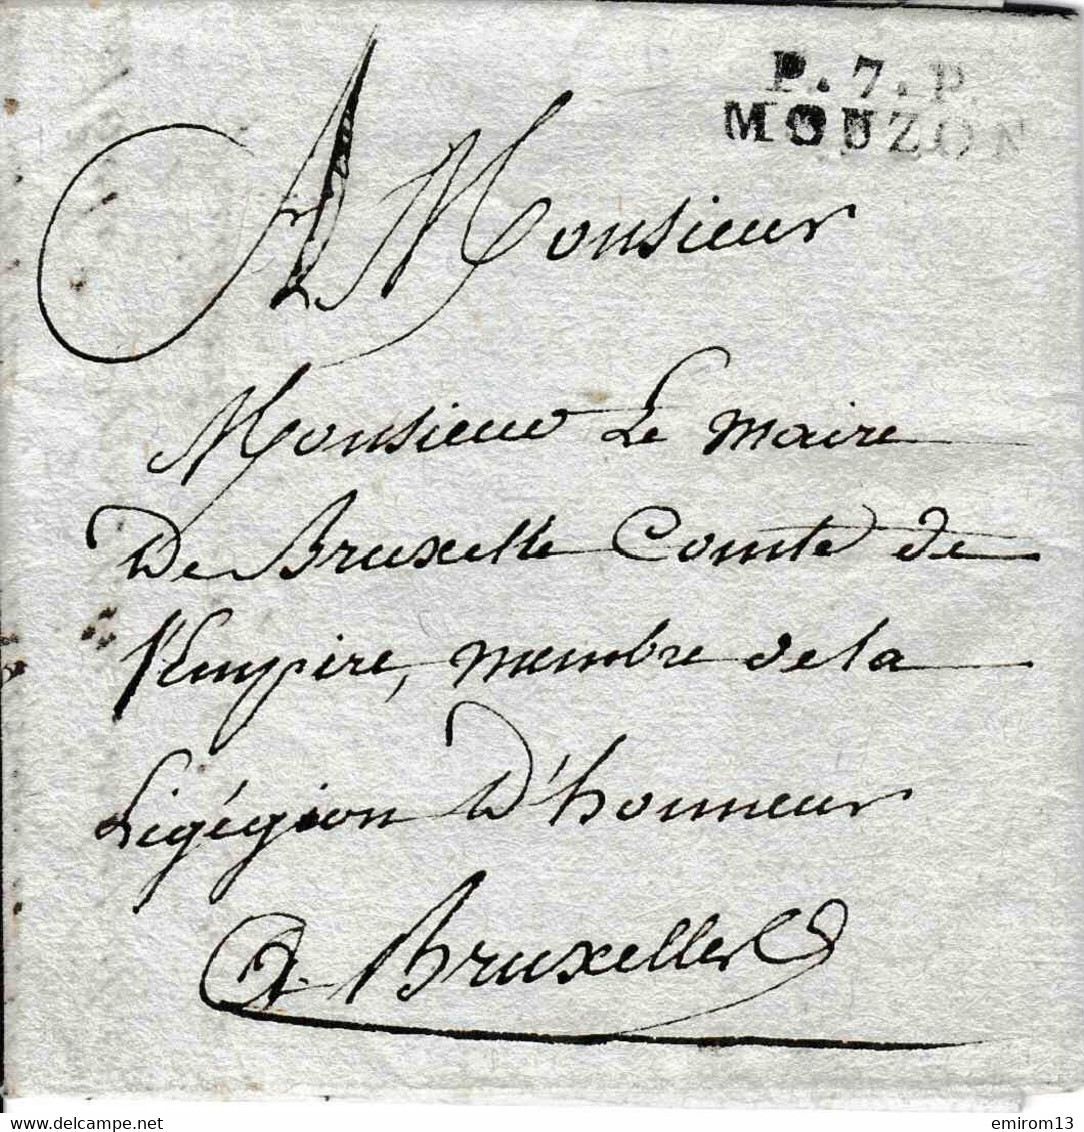 P. 7. P.
MOUZON
A Monsieur
Monsieur Le maire
De Bruxelle Comte de
l'Empire, membre de la
Ligégion D'honneur
A Bruxelles
delcampe.net
emirom13